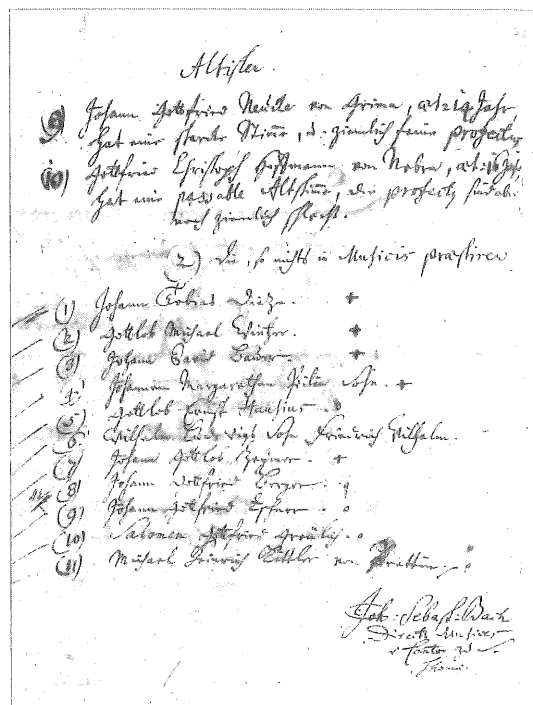 Altisten.
9) Johann Gottfried Neucke von Grima, æt: 14 Jahr
hat eine starcke Stimme, u. ziemlich feine profectus
10) Gottfried Christoph Hoffmann von Nebra, æt: 16 Jahr
hat eine passable Altstimme, die profectus sind aber
noch ziemlich schlecht.
2) Die, so nichts in Musicis præstiren
(1) Johann Tobias Dietze. +
(2) Gottlob Michael Wintzer. +
(3) Johann David Bauer +
4) Johannen Margarethen Sohn. +
(5) Gottlob Ernst Hausius. o
6) Wilhelm Ludewigs Sohn Friedrich Wilhelm.
(7) Johann Gottlob Zeymer. +
(8) Johann Gottfried Berger.
(9) Johann Gottfried Eschner. o
(10) Salomon Gottfried Greulich. o
(11) Michael Heinrich Kittler von Prettin. o
Joh: Sebast: Bach
Direct: Musices
u Cantor zu S.
Thomæ.